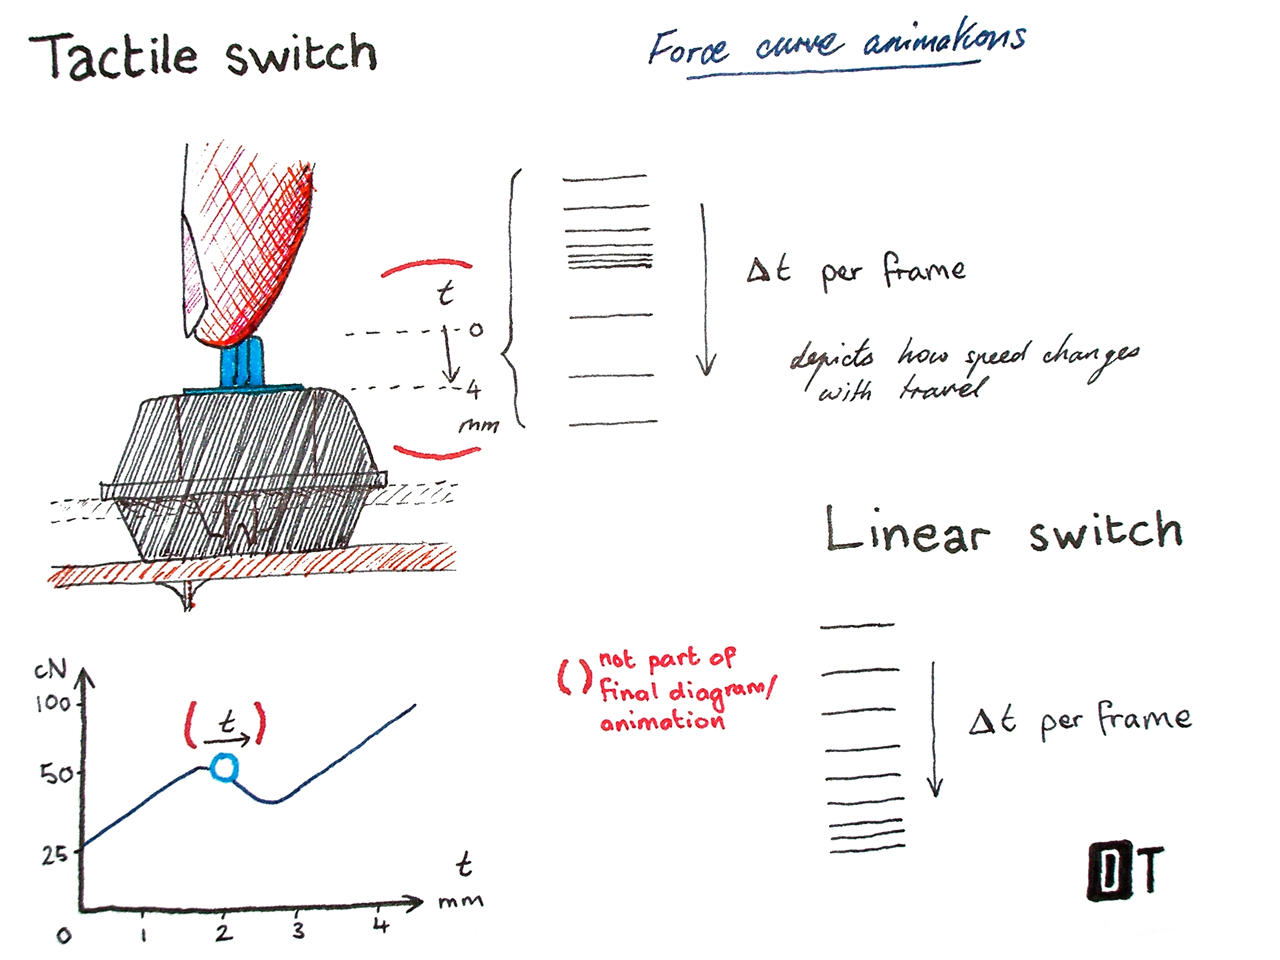 Tactile switch
Force curve animations
t
0
4
mm
Δt per frame
depicts how speed changes
with travel
Linear switch
cN
100
50
25
( t )
0
1
2
3
4
t
mm
( ) not part of
final diagram/
animation
Δt per frame
DT